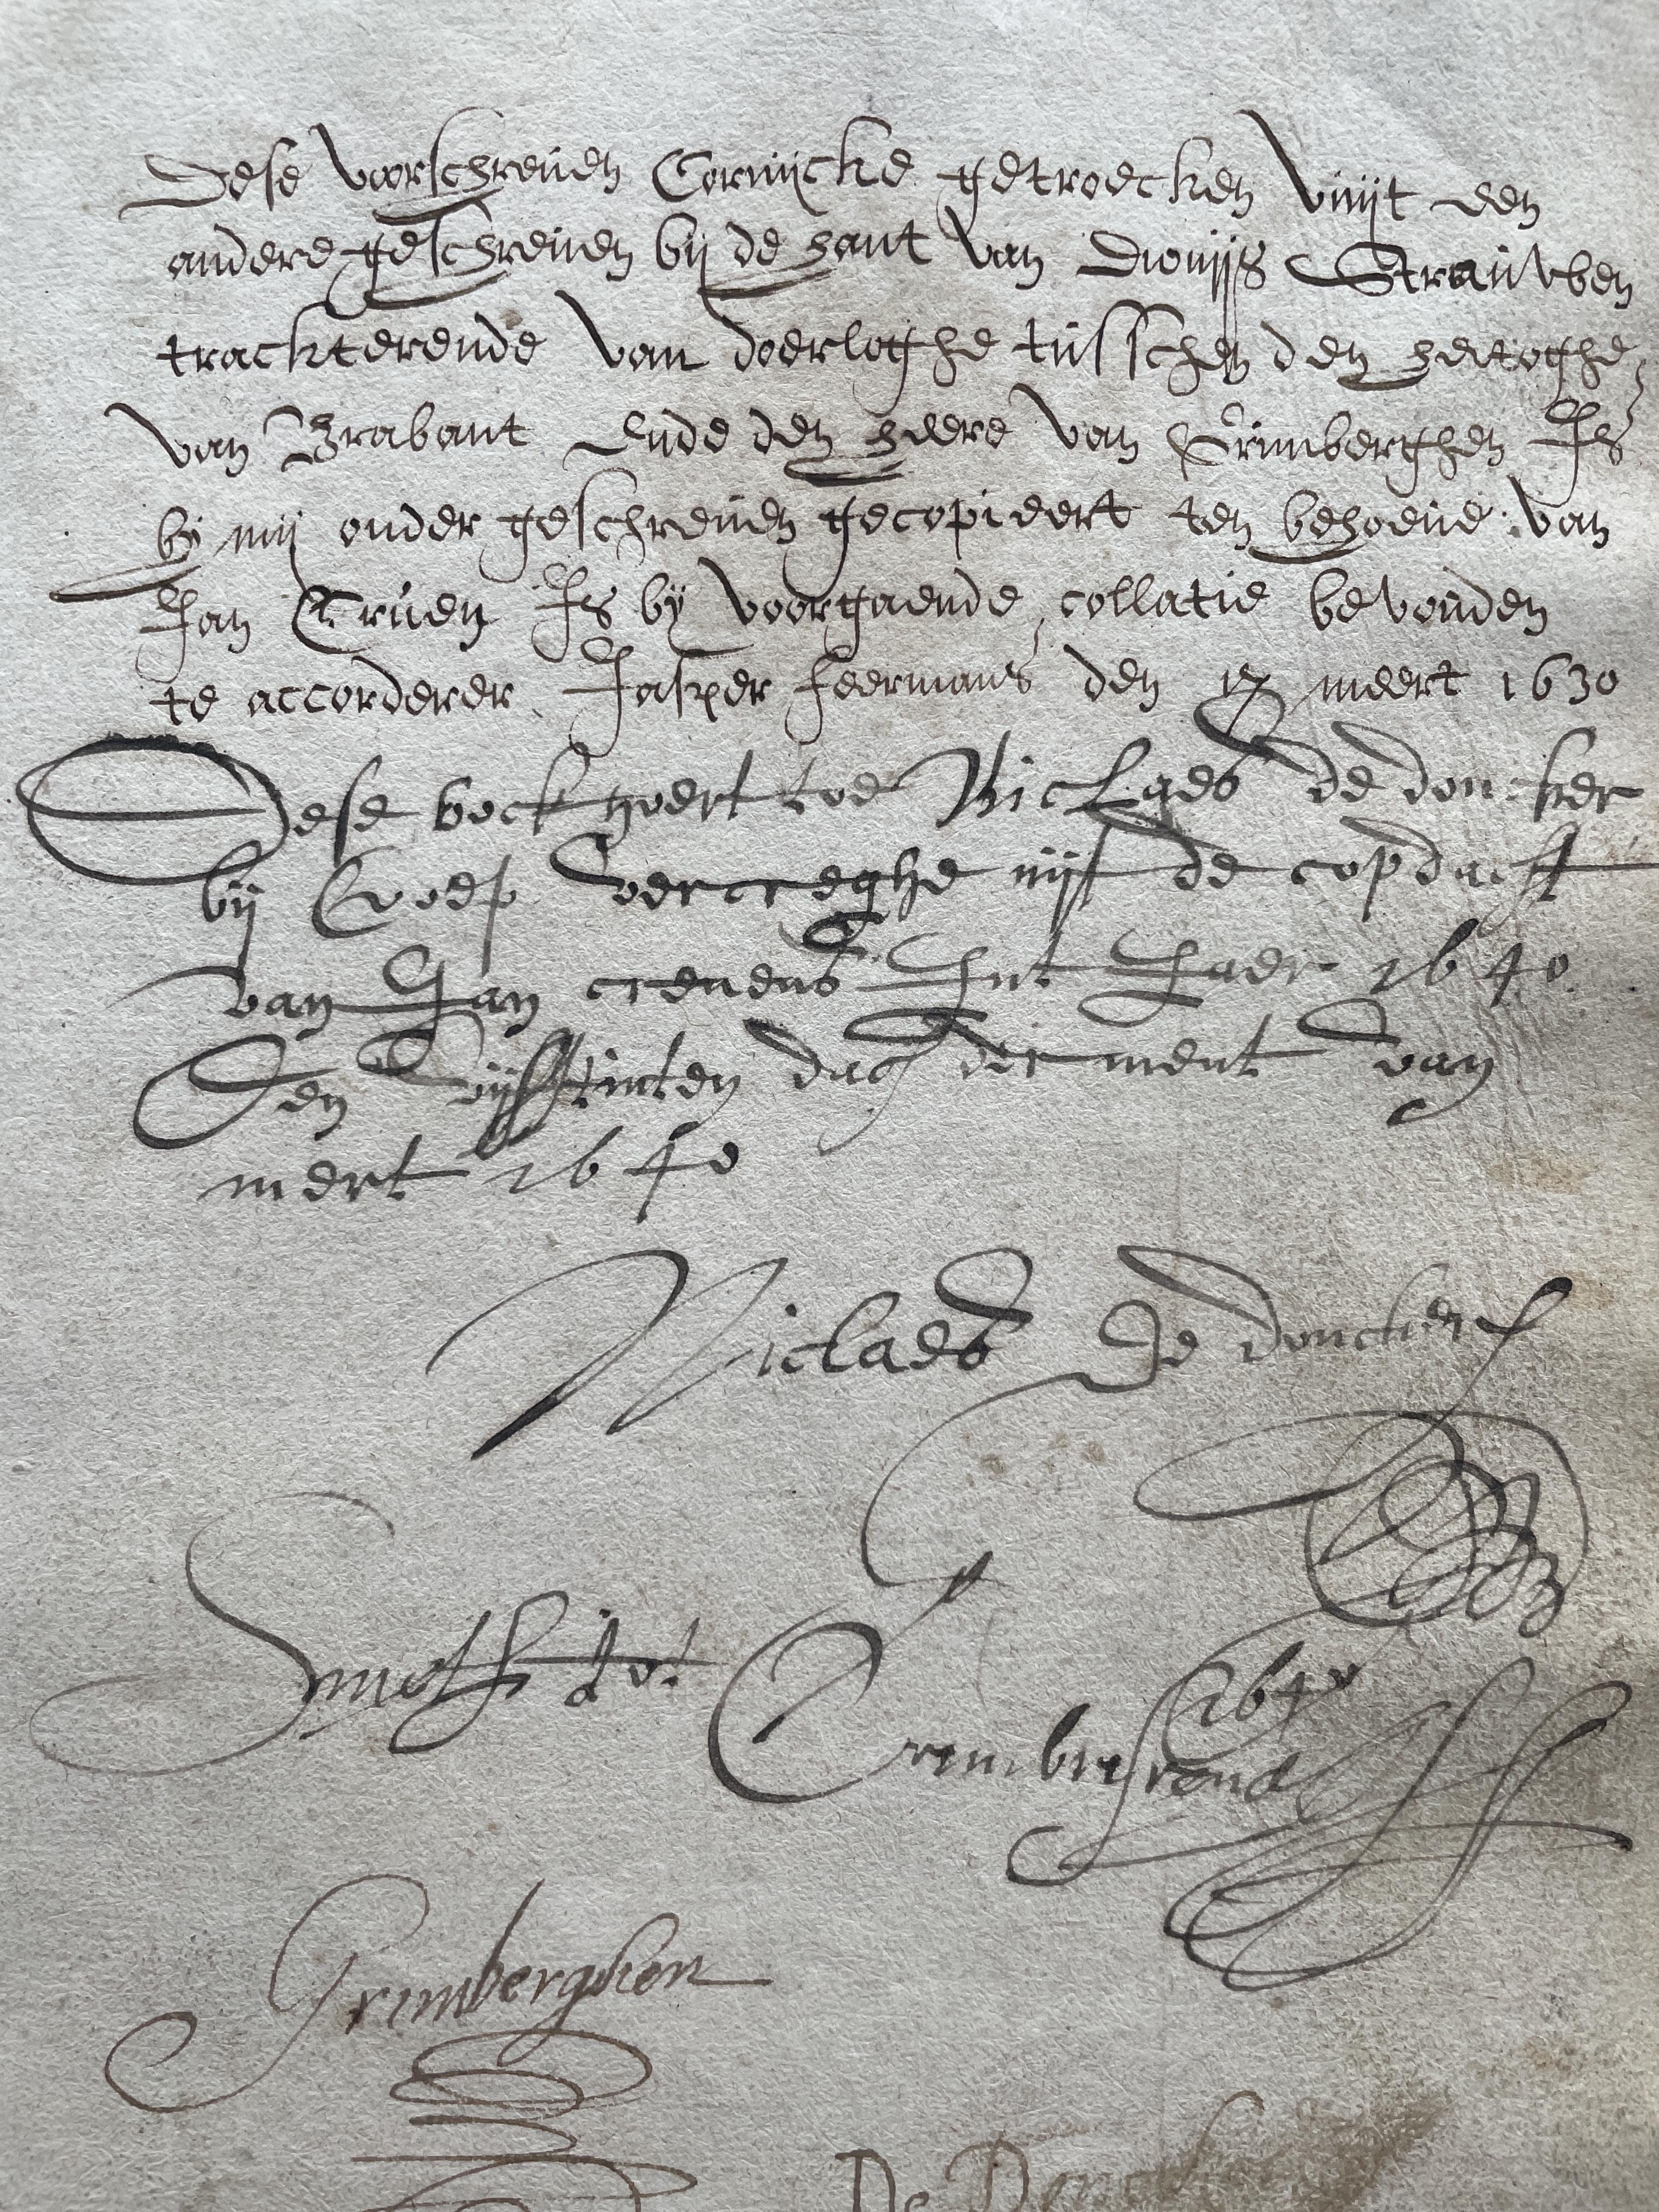 Dese voorschreuen Cornijcke getroecken vuijt den
andere geschreuen bij de hant van Dionijs Strauvben
trackterende van doerloghe tusschen den hertoghe
van Brabant Ende den heere van Grimberghen Is
bi mij onder geschreuen gecopieert ten behoeue van
Jan Cruen Is bij voorgaende collatie bevonden
te accorderer Jasper feermans den 17 meert 1630
Dese bock hoert toe Niclaes de doncker
bij Coep vercreghe uijt de copdacht
van Jan creuens Int Jaer 1640
Den vijfftinten dach der ment van
mert 1640
Niclaes De doncker
1640
Smeth tot
Grimberghen
De